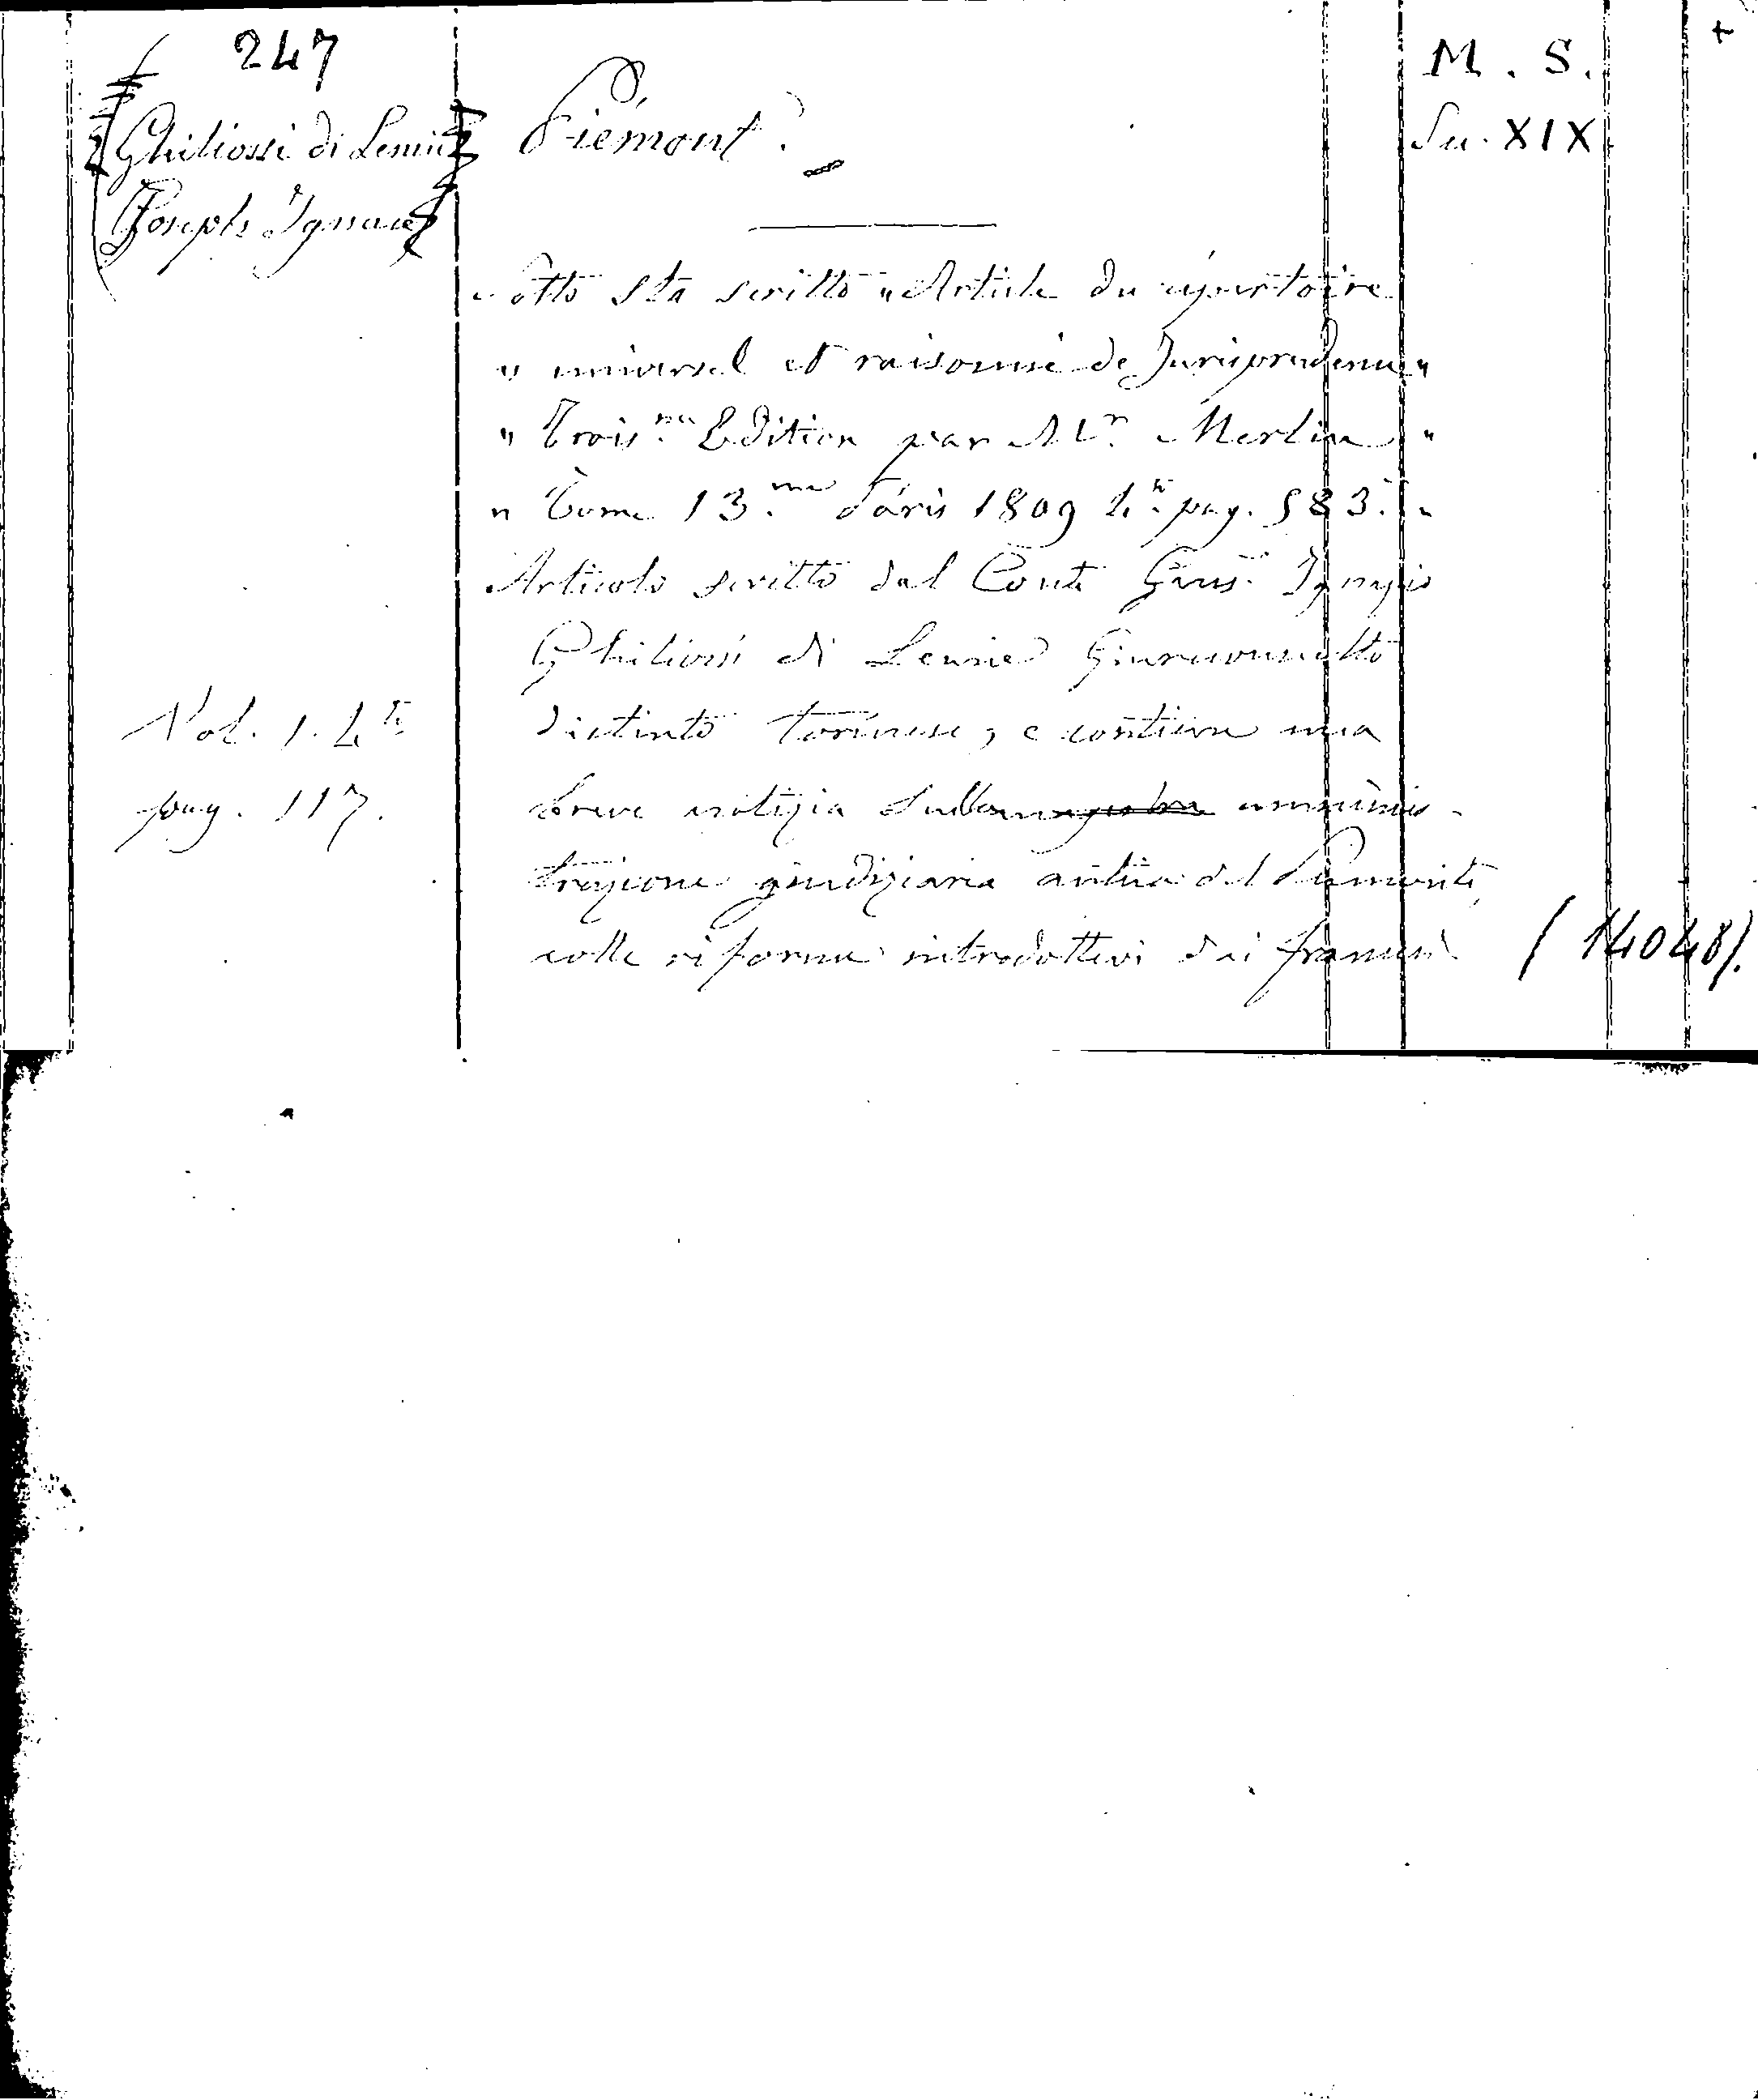 247
Ghiliossi di Lemie
Joseph Ignace
Piémont.
M. S.
Sec. XIX
Sotto sta scritto „ Article du répertoire
„ universel et raisonné de Jurisprudence „
„ Trois.me Edition par M.r Merlin „
„ Tome 13.me Paris 1809 4.to pag. 583. „
Articolo scritto dal Conte Gius. Ignazio
Ghiliossi di Lemie Giureconsulto
distinto torinese, e contiene una
breve notizia sulla amminis-
trazione giudiziaria antica del Piemonte
colle riforme introdottevi dai francesi
Vol. 1. 4.to
pag. 117.
(14048).